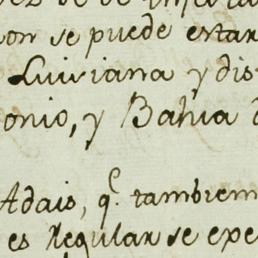 on se puede estar
Luiviana y dis
onio, y Bahia
Adais, q.e tambrem
es Regular se expe